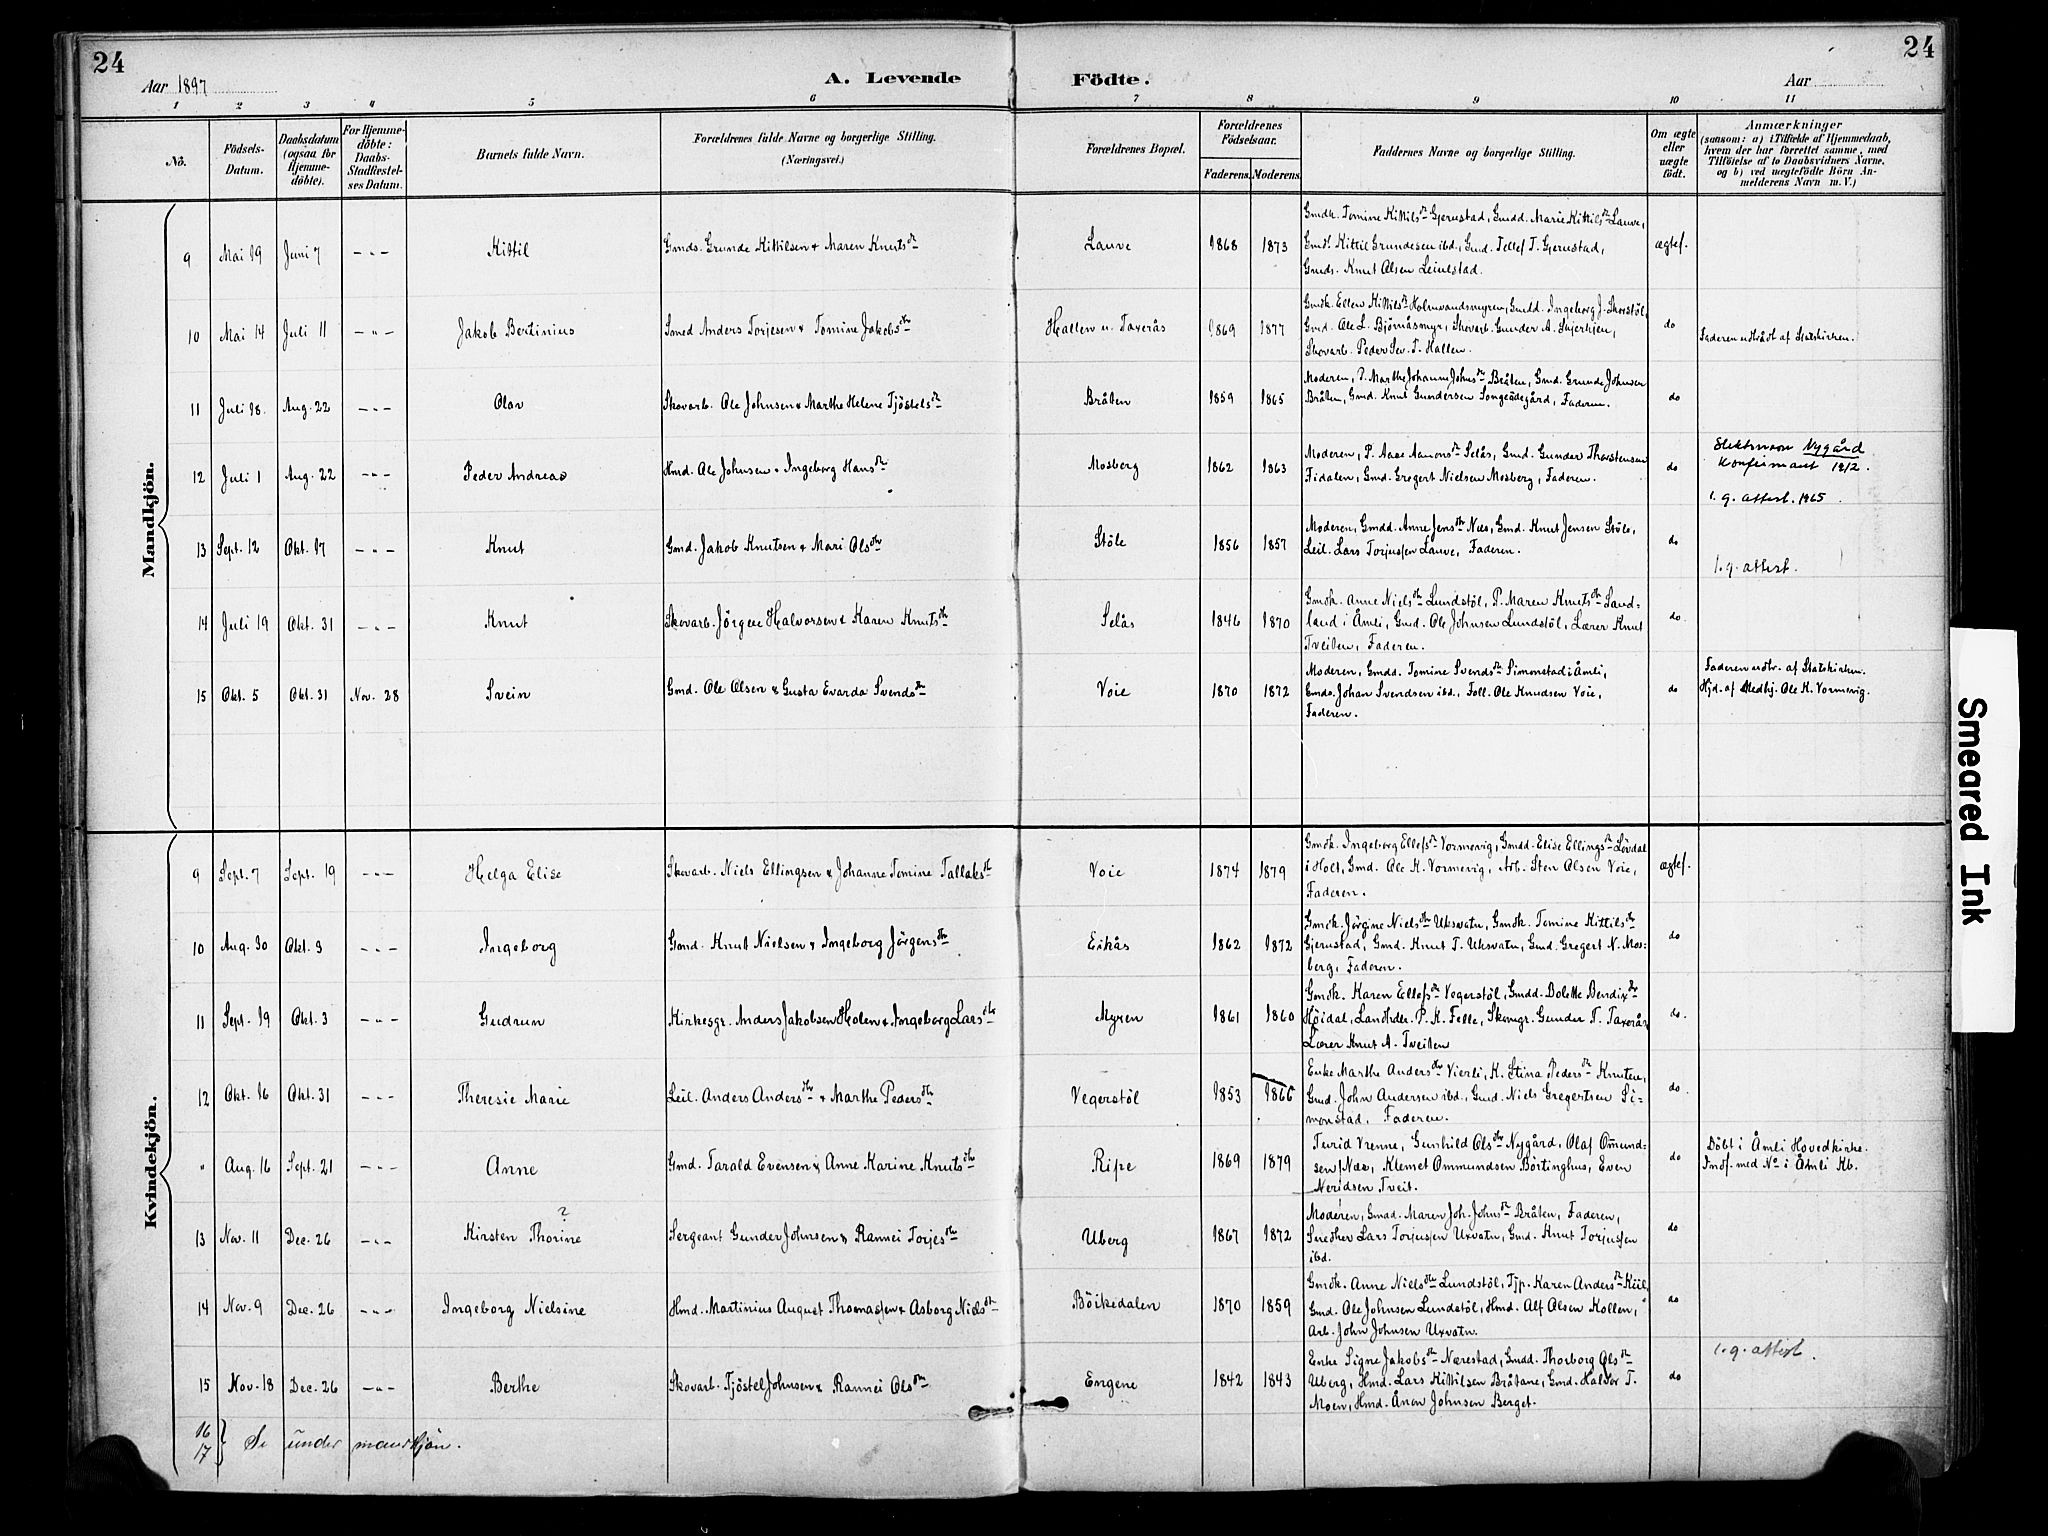 24
24
Aar 1897
A. Levende
Födte.
Aar
1 2 3 4 5 6 7 8 9 10 11
No.
Födsels-
Datum.
Daabsdatum
(ogsaa for
Hjemme-
döbte).
For Hjemme-
döbte:
Daabs-
Stadfæstel-
ses Datum.
Barnets fulde Navn.
Forældrenes fulde Navne og borgerlige Stilling.
(Næringsvei.)
Forældrenes Bopæl.
Forældrenes
Födselsaar.
Faderens. Moderens.
Faddernes Navne og borgerlige Stilling.
Om ægte
eller
uægte
födt.
Anmærkninger
(saasom: a) i Tilfælde af Hjemmedaab,
hvem der har forrettet samme, med
Tilföielse af to Daabsvidners Navne.
og b) ved uægtefödte Börn An-
melderens Navn m. V.)
Mandkjön.
9 Mai 19 Juni 7 - „ - Kittil Gmds. Grunde Kittilsen & Maren Knutsdtr Lauve 1868 1873
Gmdk. Tomine Kittilsdtr Gjerustad, Gmdd. Marie Kittilsdtr Lauve,
Gmdf. Kittil Grundesen ibd., Gmd. Tellef T. Gjerustad,
Gmds. Knut Olsen Leiulstad.
ægtef.
10 Mai 14 Juli 11 - „ - Jakob Bertinius Smed Anders Torjesen & Tomine Jakobsdtr Hallen u. Taxerås 1869 1877
Gmdk. Ellen Kittilsdtr Holmvandsmyren, Gmdd. Ingeborg J. Skorstöl,
Gmd. Ole L. Björnåsmyr, Skovarb. Gunder A. Skjerkjen,
Skovarb. Peder Sev. T. Hallen.
do
Faderen udtrådt af Statskirken.
11 Juli 18. Aug. 22 - „ - Olav Skovarb. Ole Johnsen & Marthe Helene Tjöstelsdtr Bråten 1859 1865
Moderen, P. Marthe Johanne Johnsdtr Bråten, Gmd. Grunde Johnsen
Bråten, Gmd. Knut Gundersen Songeödegård, Faderen.
do
12 Juli 1 Aug. 22 - „ - Peder Andreas Hmd. Ole Johnsen & Ingeborg Hansdtr Mosberg 1862 1863
Moderen, P. Aase Aanonsdtr Selås, Gmd. Gunder Thorstensen
Fidalen, Gmd. Gregert Nielsen Mosberg, Faderen.
do
Slektsnavn Nygård
Konfirmant 1912.
1. g. attest. 1965.
13 Sept. 12 Okt. 17 - „ - Knut Gmd. Jakob Knutsen & Mari Olsdtr Stöle 1856 1857
Moderen, Gmdd. Anne Jensdtr Næs, Gmd. Knut Jensen Stöle,
Leil. Lars Torjussen Lauve, Faderen.
do
1. g. attest.
14 Juli 19 Okt. 31 - „ - Knut Skovarb. Jörgen Halvorsen & Karen Knutsdtr Selås 1846 1870
Gmdk. Anne Nielsdtr Lundstöl, P. Maren Knutsdtr Land-
land i Åmli, Gmd. Ole Johnsen Lundstöl, Lærer Knut
Tveiten, Faderen.
do
15 Okt. 5 Okt. 31 Nov. 28 Svein Gmd. Ole Olsen & Gusta Evarda Svendsdtr Voie 1870 1872
Moderen, Gmdd. Tomine Svendsdtr Simonstad i Åmli,
Gmds. Johan Svendsen ibd., Foll. Ole Knudsen Voie,
Faderen.
do
Faderen udtr. af Statskirken.
Hjd. af Medhj. Ole K. Vormevig.
Kvindekjön.
9 Sept. 7 Sept. 19 - „ - Helga Elise Skovarb. Niels Ellingsen & Johanne Tomine Tallaksdtr Voie 1874 1879
Gmdk. Ingeborg Ellefsdtr Vormevig, Gmdd. Elise Ellingsdtr Lövdal
i Holt, Gmd. Ole K. Vormevig, Arb. Sten Olsen Voie,
Faderen.
ægtef.
10 Aug. 30 Okt. 3 - „ - Ingeborg Gmd. Knut Nielsen & Ingeborg Jörgensdtr Eikås 1862 1872
Gmdk. Jörgine Nielsdtr Uksvatn, Gmdk. Tomine Kittilsdtr
Gjerustad, Gmd. Knut T. Uksvatn, Gmd. Gregert N. Mos-
berg, Faderen.
do
11 Sept. 19 Okt. 3 - „ - Gudrun Kirkesgr. Anders Jakobsen Holen & Ingeborg Larsdtr Myren 1861 1860
Gmdk. Karen Ellefsdtr Vegerstöl, Gmdd. Dolette Bendixdtr
Höidal, Landhdr. P. K. Felle, Skomgr. Gunder T. Taxerås
Lærer Knut A. Tveiten
do.
12 Okt. 16 Okt. 31 - „ - Theresie Marie Leil. Anders Andersdtr & Marthe Pedersdtr Vegerstöl 1853 1866
Enke Marthe Andersdtr Vierli, K. Stina Pedersdtr Knuten,
Gmd. John Andersen ibd., Gmd. Niels Gregertsen Si-
monstad, Faderen.
do
„ Aug. 16 Sept. 21 - „ - Anne Gmd. Tarald Evensen & Anne Karine Knutsdtr Ripe 1869 1879
Turid Vrenne, Gunhild Olsdtr Nygård, Olaf Omund-
sen Næs, Klemet Ommundsen Börtinghus, Even
Neridsen Tveit.
do
Döbt i Åmli Hovedkirke.
Indf. med No i Åmli Kb.
13 Nov. 11 Dec. 26 - „ - Kirsten Thorine ? Sergeant Gunder Johnsen & Rannei Torjesdtr Uberg 1867 1872
Moderen, Gmdd. Maren Joh. Johnsdtr Bråten, Faderen,
Snedker Lars Torjussen Uxvatn, Gmd. Knut Torjussen
ibd.
do
14 Nov. 9 Dec. 26 - „ - Ingeborg Nielsine Hmd. Martinius August Thomassen & Asborg Nielsdtr Böikedalen 1870 1859
Gmdk. Anne Nielsdtr Lundstöl, Tjp. Karen Andersdtr Kiil,
Gmd. Ole Johnsen Lundstöl, Hmd. Alf Olsen Kollen,
Arb. John Johnsen Uxvatn.
do
15 Nov. 18 Dec. 26 - „ - Berthe Skovarb. Tjöstel Johnsen & Rannei Olsdtr Engene 1842 1843
Enke Signe Jakobsdtr Nærestad, Gmdd. Thorborg Olsdtr
Uberg, Hmd. Lars Kittilsen Bråtane, Gmd. Halvor T.
Moen, Hmd. Ånon Johnsen Berget.
do
1. g. attest.
16
17 } Se under mandkjön.
Smeared Ink